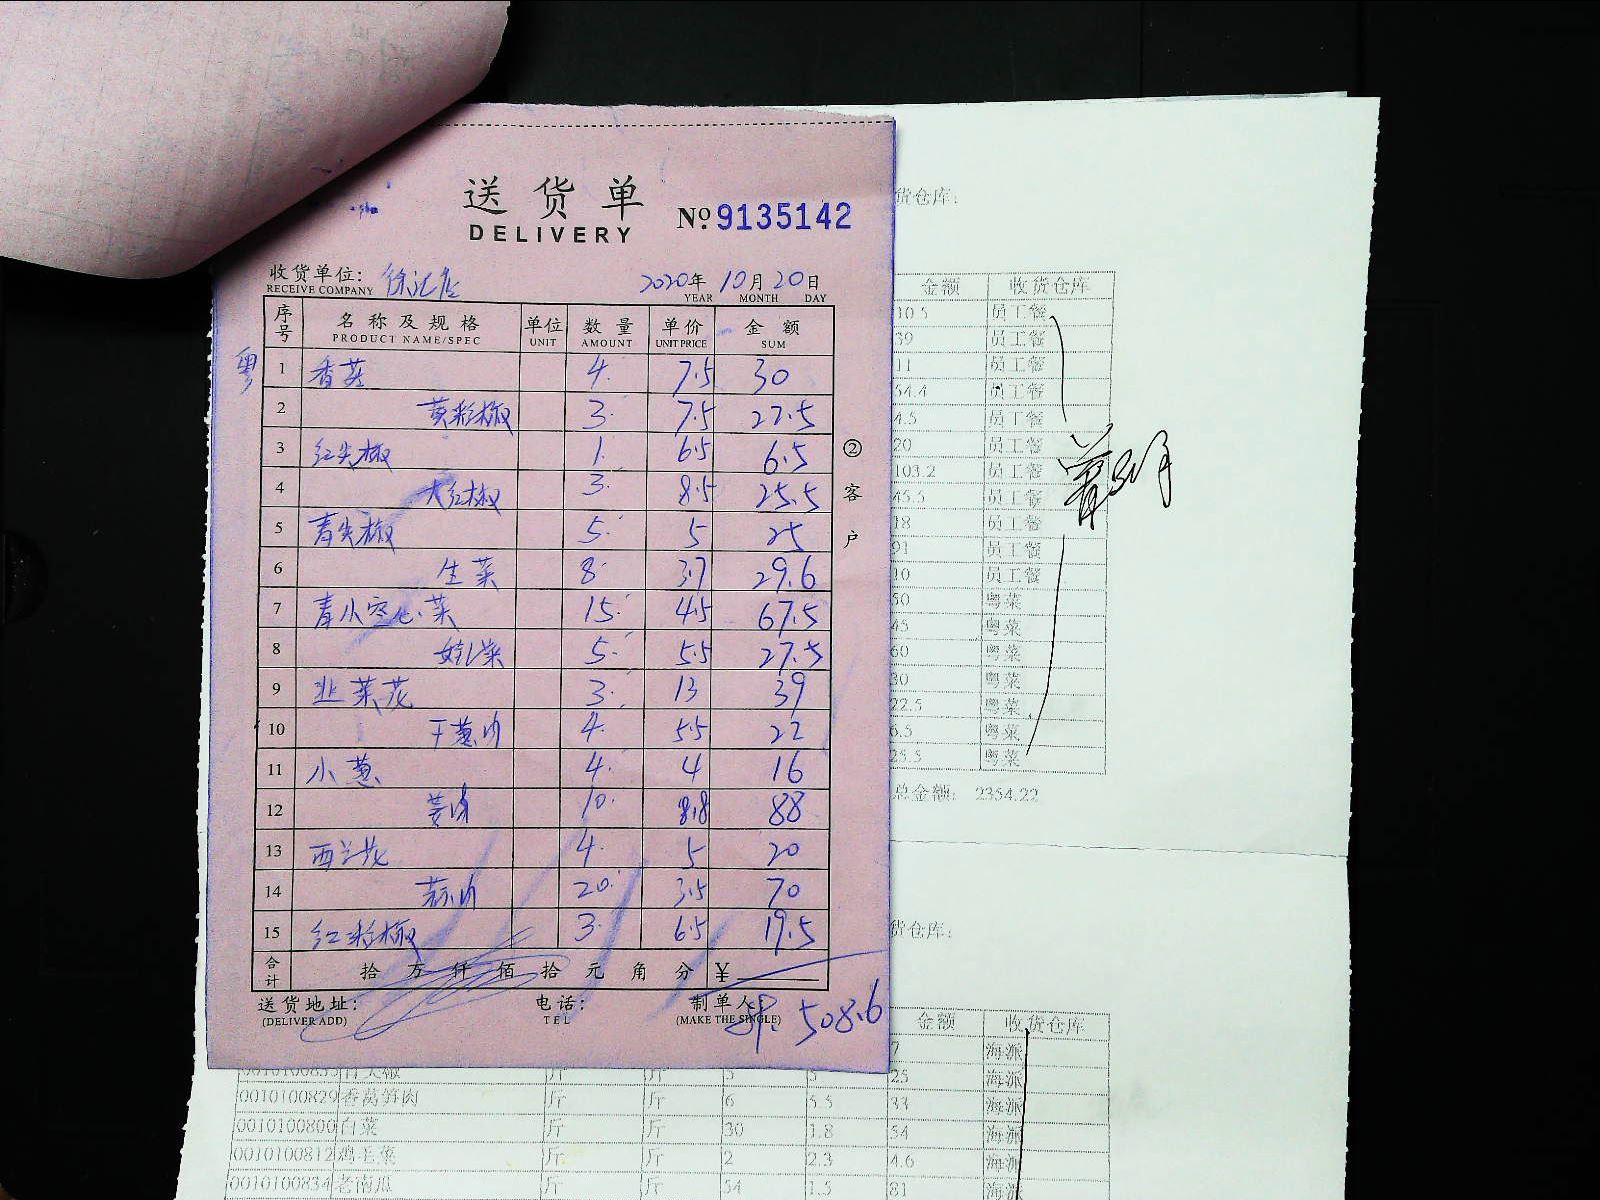 送货单
DELIVERY
№ 9135142
收货单位: 徐汇店 2020年 10月 20日
RECEIVE COMPANY YEAR MONTH DAY
序号 名称及规格 单位 数量 单价 金额
PRODUCT NAME/SPEC UNIT AMOUNT UNIT PRICE SUM
粤
1 香菜 4 7.5 30
2 黄彩椒 3 7.5 22.5
3 红尖椒 1 6.5 6.5
4 大红椒 3 8.5 25.5
5 青尖椒 5 5 25
6 生菜 8 3.7 29.6
7 青小空心菜 15 4.5 67.5
8 娃娃菜 5 5.5 27.5
9 韭菜花 3 13 39
10 干葱肉 4 5.5 22
11 小葱 4 4 16
12 姜肉 10 8.8 88
13 西兰花 4 5 20
14 蒜肉 20 3.5 70
15 红彩椒 3 6.5 19.5
合计 拾 万 仟 佰 拾 元 角 分 ¥
送货地址: 电话: 制单人:
(DELIVER ADD) TEL (MAKE THE SINGLE)
508.6
② 客户
货仓库:
金额 收货仓库
10.5 员工餐
39 员工餐
11 员工餐
54.4 员工餐
4.5 员工餐
20 员工餐
103.2 员工餐
45.5 员工餐
18 员工餐
91 员工餐
10 员工餐
50 粤菜
45 粤菜
60 粤菜
30 粤菜
22.5 粤菜
6.5 粤菜
25.5 粤菜
总金额: 2354.22
货仓库:
金额 收货仓库
7 海派
0010100835 青尖椒 斤 斤 5 5 25 海派
0010100829 香莴笋肉 斤 斤 6 5.5 33 海派
0010100800 白菜 斤 斤 30 1.8 54 海派
0010100812 鸡毛菜 斤 斤 2 2.3 4.6 海派
0010100834 老南瓜 斤 斤 54 1.5 81 海派